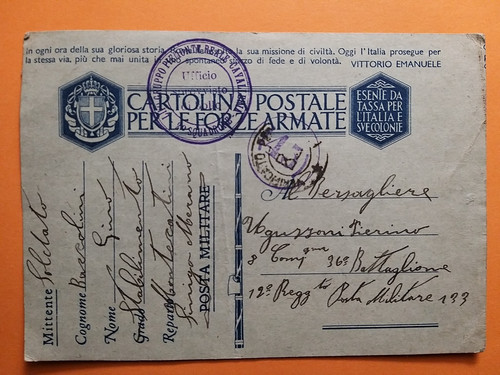 In ogni ora della sua gloriosa storia la sua missione di civiltà. Oggi l'Italia prosegue per
la stessa via, più che mai unita spontaneo di fede e di volontà. VITTORIO EMANUELE
GRUPPO PIEMONTE REALE CAVALLERIA
Ufficio
CARTOLINA POSTALE
PER LE FORZE ARMATE
ESENTE DA
TASSA PER
L'ITALIA E
SVE COLONIE
VERIFICATO
Mittente Soldato
Cognome
Nome Gino
Grado Stabilimento
Reparto Montecatini
Sinigo Merano
POSTA MILITARE
Al Bersagliere
Uguzzoni Pierino
8 Compgna 36° Battaglione
12° Reggto Posta Militare 133